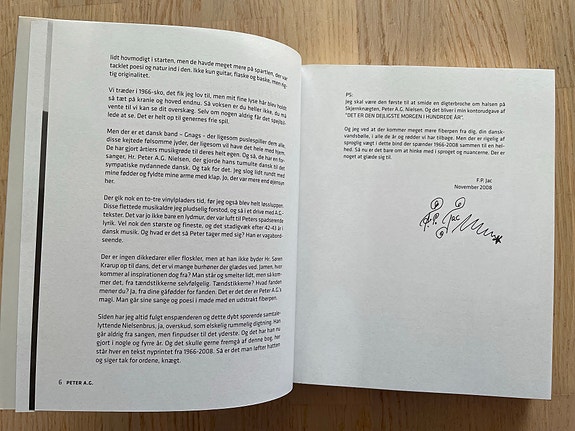 lidt hovmodigt i starten, men de havde meget mere på spartlen, der var
tacklet poesi og natur ind i den. Ikke kun guitar, flaske og baske, men rig-
tig originalitet.
Vi træder i 1966-sko, det fik jeg lov til, men mit fine lyse hår blev holdt
så tæt på kranie og hoved endnu. Så voksen er du heller ikke, du må
vente til vi kan se dit overskæg. Selv om nogen aldrig får det spejlsil-
lede at se. Det er helt op til genernes frie spil.
Men der er et dansk band – Gnags - der ligesom puslespiller dem alle,
disse kejtede følsomme jyder, der ligesom vil have det hele med hjem.
De har gjort årtiers musikgrøde til deres helt egen. Og så, de har en for-
sanger, Hr. Peter A.G. Nielsen, der gjorde hans tumulte dansk til det
sympatiske nydannede dansk. Og tak for det. Jeg slog lidt rundt med
mine fødder og fyldte mine arme med klap. Jo, der var mere end øjemust
her.
Der gik nok en to-tre vinylplader tid, før jeg også blev helt løssluppen.
Disse flettede musikaldre jeg pludselig forstod, og så i et drive med A.G.-
tekster. Det var jo ikke bare en lydmur, der var luft til Peters spadserende
lyrik. Vel nok den største og fineste, og det stadigvæk efter 42-43 år i
dansk musik. Og hvad er det så Peter tager med sig? Han er vagabond-
seende.
Der er ingen dikkedarer eller floskler, men at han ikke byder Hr. Søren
Krarup op til dans, det er vi mange burhøner der glædes ved. Jamen, hvor
kommer al inspirationen dog fra? Man står og smelter lidt, men så kom-
mer det, fra tændstikkerne selvfølgelig. Tændstikkerne? Hvad fanden
mener du? Ja, fra dine gåfødder for fanden. Det er det der er Peter A.G.'s
magi. Man går sine sange og poesi i møde med en udstrakt fiberpen.
Siden har jeg altid fulgt enspænderen og dette dybt sporende samtale-
lyttende Nielsenbrus, ja, overskud, som elskelig rummelig digtning. Han
går aldrig fra sangen, men finpudser til det yderste. Og det har han nu
gjort i nogle og fyrre år. Og det skulle gerne fremgå af denne bog, her
står hver en tekst nyprintet fra 1966-2008. Så er det man løfter hatten
og siger tak for ordene, knægt.
6 PETER A.G.
PS:
Jeg skal være den første til at smide en digterbroche om halsen på
Skjæmknægten, Peter A.G. Nielsen. Og det bliver i min kontorudgave af
"DET ER DEN DEJLIGSTE MORGEN I HUNDREDE ÅR".
Og jeg ved at der kommer meget mere fiberpen fra dig, din dansk-
vandsbølle, i alle de år og rødder vi har tilbage. Men der er rigelig af
sproglig vægt i dette bind der spænder 1966-2008 sammen til en hel-
hed. Så nu er det bare om at hinke med i sproget og nuancerne. Der er
noget at glæde sig til.
F.P. Jac
November 2008
F.P. Jac